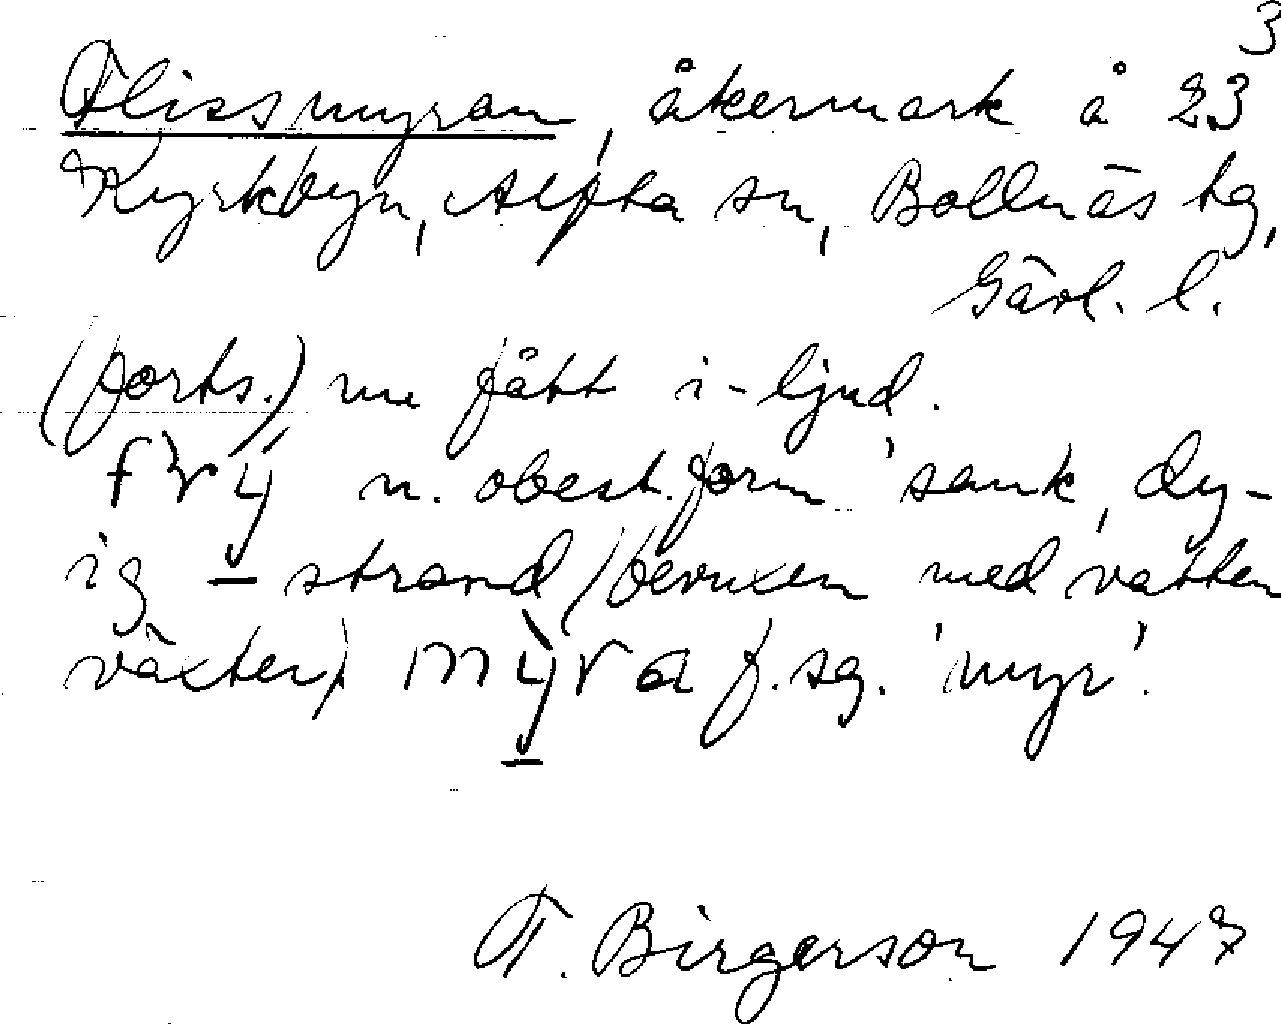 3
Flissmyran, åkermark å 23
Kyrkbyn, Alfta sn, Bollnäs tg,
Gävl. l.
(forts.) nu fått i-ljud.
n. obest. form 'sank, dy-
ig strand (bevuxen med vatten
växter) f. sg. 'myr'.
F. Birgerson 1947